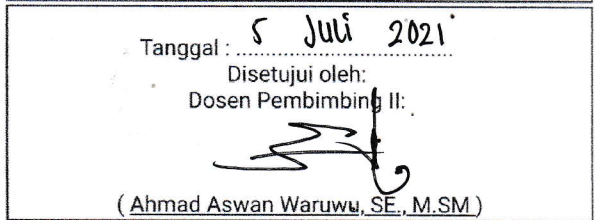 Tanggal : 5 Juli 2021
Disetujui oleh:
Dosen Pembimbing II:
( Ahmad Aswan Waruwu, SE., M.SM )